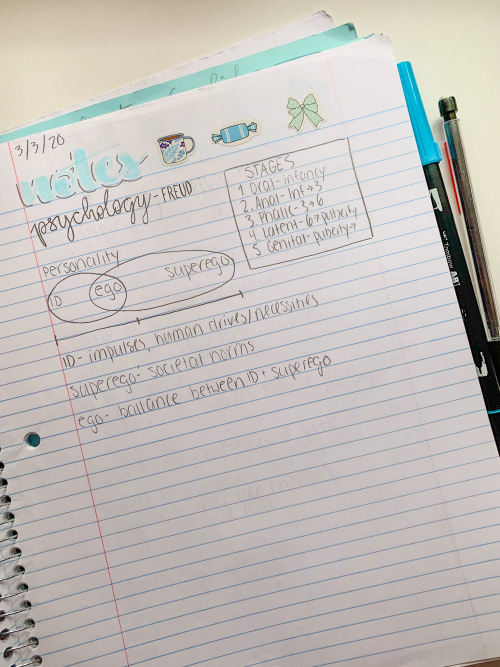 3/3/20
notes
psychology - FREUD
STAGES
1 Oral - infancy
2. Anal - Inf→3
3 Phalic - 3→6
4 Latent - 6→puberty
5 Genital - puberty→
personality
ID
ego
superego
ID - impulses, human drives/necessities
superego - societal norms
ego - ballance between ID + superego